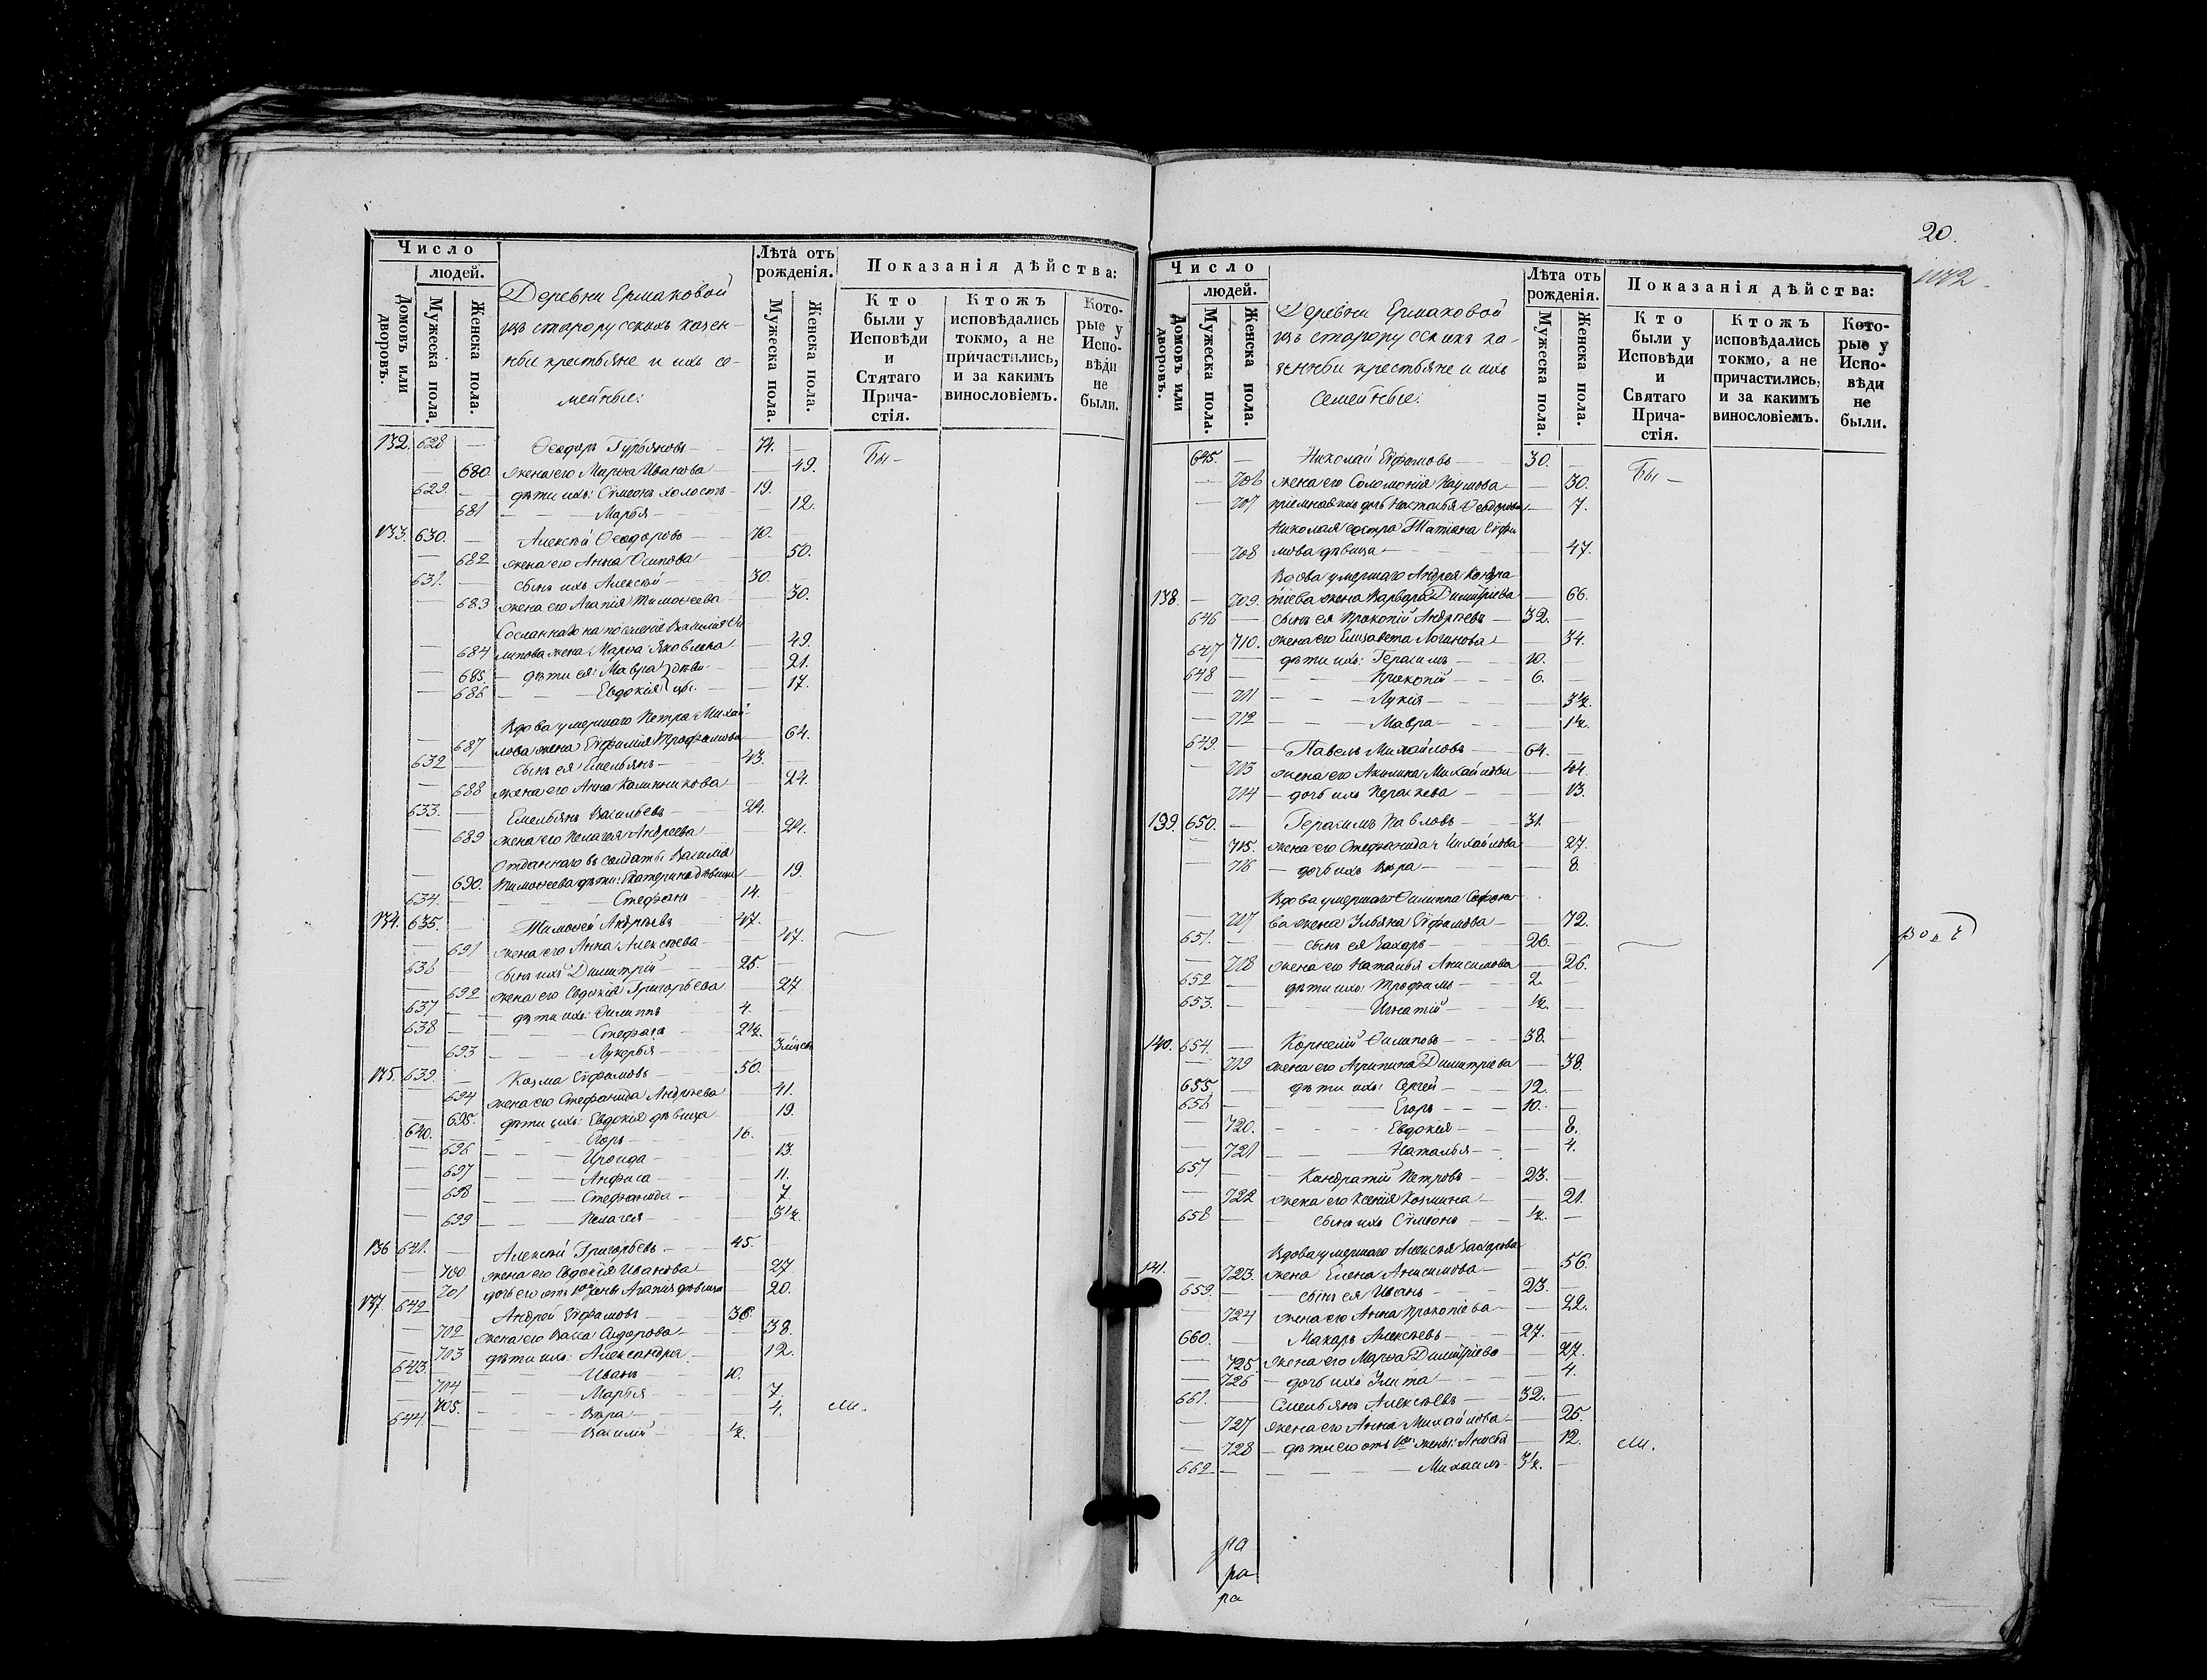 Число
людей.
Домовъ или дворовъ.
Мужеска пола.
Женска пола.
Деревни Ермаковой
изъ старорусскихъ казен-
ныи крестьяне и ихъ се-
мейные:
Лѣта отъ рожденія.
Мужеска пола.
Женска пола.
Показанія дѣйства:
Кто были у Исповѣди и Стятаго Прича-стія.
Ктожъ исповѣдались токмо, а не причастились, и за какимъ винословіемъ.
Кото-рые у Испо-вѣди не были.
132. 628 — Ѳеодоръ Гурьяновъ — 74. — Бы —
— 680 жена его Марѳа Иванова — 49.
629. — дѣти ихъ: Сѵмеонъ холостъ — 19.
— 681 — Марья — 12.
133. 630. — Алексѣй Ѳеодоровъ — 70. —
— 682 жена его Анна Осипова — 50.
631. — сынъ ихъ Алексѣй — 30. —
— 683 жена его Агапія Тимоѳеева — 30.
Сосланнаго на поселеніе Василія Фи
— 684 липова жена Марѳа Яковлева — 49.
— 685. — дѣти ея: Мавра } дѣви- — 21.
— 686 — Евдокія } цы. — 17.
Вдова умершаго Петра Михай-
— 687 лова жена Евфимія Трофимова — 64.
632 — сынъ ея Емельянъ — 43. —
— 688 жена его Анна Калинникова — 24.
633. — Емельянъ Васильевъ — 24. —
— 689 жена его Пелагея Андреева — 24.
Отданнаго въ солдаты Василія
— 690. Тимоѳеева дѣти: Екатерина дѣвица — 19.
634. — Стефанъ — 14. —
134. 635. — Тимоѳей Андреевъ 47. —
— 691 жена его Анна Алексѣева — 47.
636 — сынъ ихъ Димитрій — 25. —
— 692 жена его Евдокія Григорьева — 27
637 — дѣти ихъ: Филиппъ 4. —
638 — Стефанъ — 2½. —
— 693 — Лукерья — 3 мѣсец
135. 639. — Козма Евфимовъ — 50. —
— 694 жена его Стефанида Андреева — 41.
— 695. дѣти ихъ: Евдокія дѣвица — 19.
640. — Егоръ — 16. —
— 696 — Ираида — 13.
— 697 — Анфиса — 11.
— 698 — Стефанида — 7.
— 699 — Пелагея — 3½.
136 641. — Алексѣй Григорьевъ — 45. —
— 700 жена его Евдокія Иванова — 27
— 701 дочь его отъ 1ой жены Агапія дѣвица 20.
137 642 — Андрей Евфимовъ — 36. —
— 702 жена его Васса Сидорова — 38.
— 703 дѣти ихъ: Александра — 12.
643. — Иванъ 10. —
— 704 — Марья — 7.
— 705. — Вѣра — 4.
644. — Василій — ½. —
20.
Число
людей.
Домовъ или дворовъ.
Мужеска пола.
Женска пола.
Деревни Ермаковой
изъ старорусскихъ ка-
зенныи крестьяне и ихъ
Семейные:
Лѣта отъ рожденія.
Мужеска пола.
Женска пола.
Показанія дѣйства:
Кто были у Исповѣди и Святаго Прича-стія.
Ктожъ исповѣдались токмо, а не причастились, и за какимъ винословіемъ.
Кото-рые у Испо-вѣди не были.
645. — Николай Евфимовъ — 30. — Бы —
— 706 жена его Соломонія Наумова — 30.
— 707 пріемная ихъ дочь Наталья Ѳеодорова — 7.
Николая сестра Татіана Евфи
— 708 мова дѣвица — 47.
Вдова умершаго Андрея Кондра
138. — 709. тіева жена Варвара Димитріева — 66.
646 — сынъ ея Прокопій Андреевъ — 32. —
— 710. жена его Елисавета Логинова — 34.
647 — дѣти ихъ: Герасимъ — 10. —
648 — Прокопій — 6. —
— 711 — Лукія — 3½.
— 712 — Мавра — 1½.
649. — Павелъ Михайловъ — 64. —
— 713 жена его Акилина Михайлова — 44.
— 714 — дочь ихъ Параскева — 13.
139. 650. — Герасимъ Павловъ — 31. —
— 715. жена его Стефанида Михайлова — 27.
— 716 — дочь ихъ Вѣра — 8.
— 717 ва жена Ульяна Евфимова — 72.
651. — сынъ ея Захаръ — 26. —
— 718 жена его Наталья Анисимова — 26.
652 — дѣти ихъ: Трофимъ — 2. —
653. — Игнатій — ½. —
140. 654. — Корнилій Филиповъ — 38. —
— 719 жена его Агрипина Димитріева — 38.
655. — дѣти ихъ: Сергей — 12. —
656 — Егоръ — 10. —
— 720. — Евдокія — 8.
— 721 — Наталья — 4.
657 — Кондратій Петровъ — 23. —
— 722 жена его Ксенія Козмина — 21.
658 — сынъ ихъ Сѵмеонъ — ½. —
Вдова умершаго Алексѣя Захарова
141. — 723. жена Елена Анисимова — 56.
659. — сынъ ея Иванъ — 23. —
— 724 жена его Анна Прокопіева — 22.
660. — Макаръ Алексѣевъ — 27. —
— 725. жена его Марѳа Димитріева — 27.
— 726 — дочь ихъ Улита — 4.
661. — Емельянъ Алексѣевъ — 32. —
— 727 жена его Анна Михайлова — 25.
— 728 — дѣти его отъ 1ой жены: Анисья — 12.
662 — Михаилъ 3½. —
ра
ра
ра